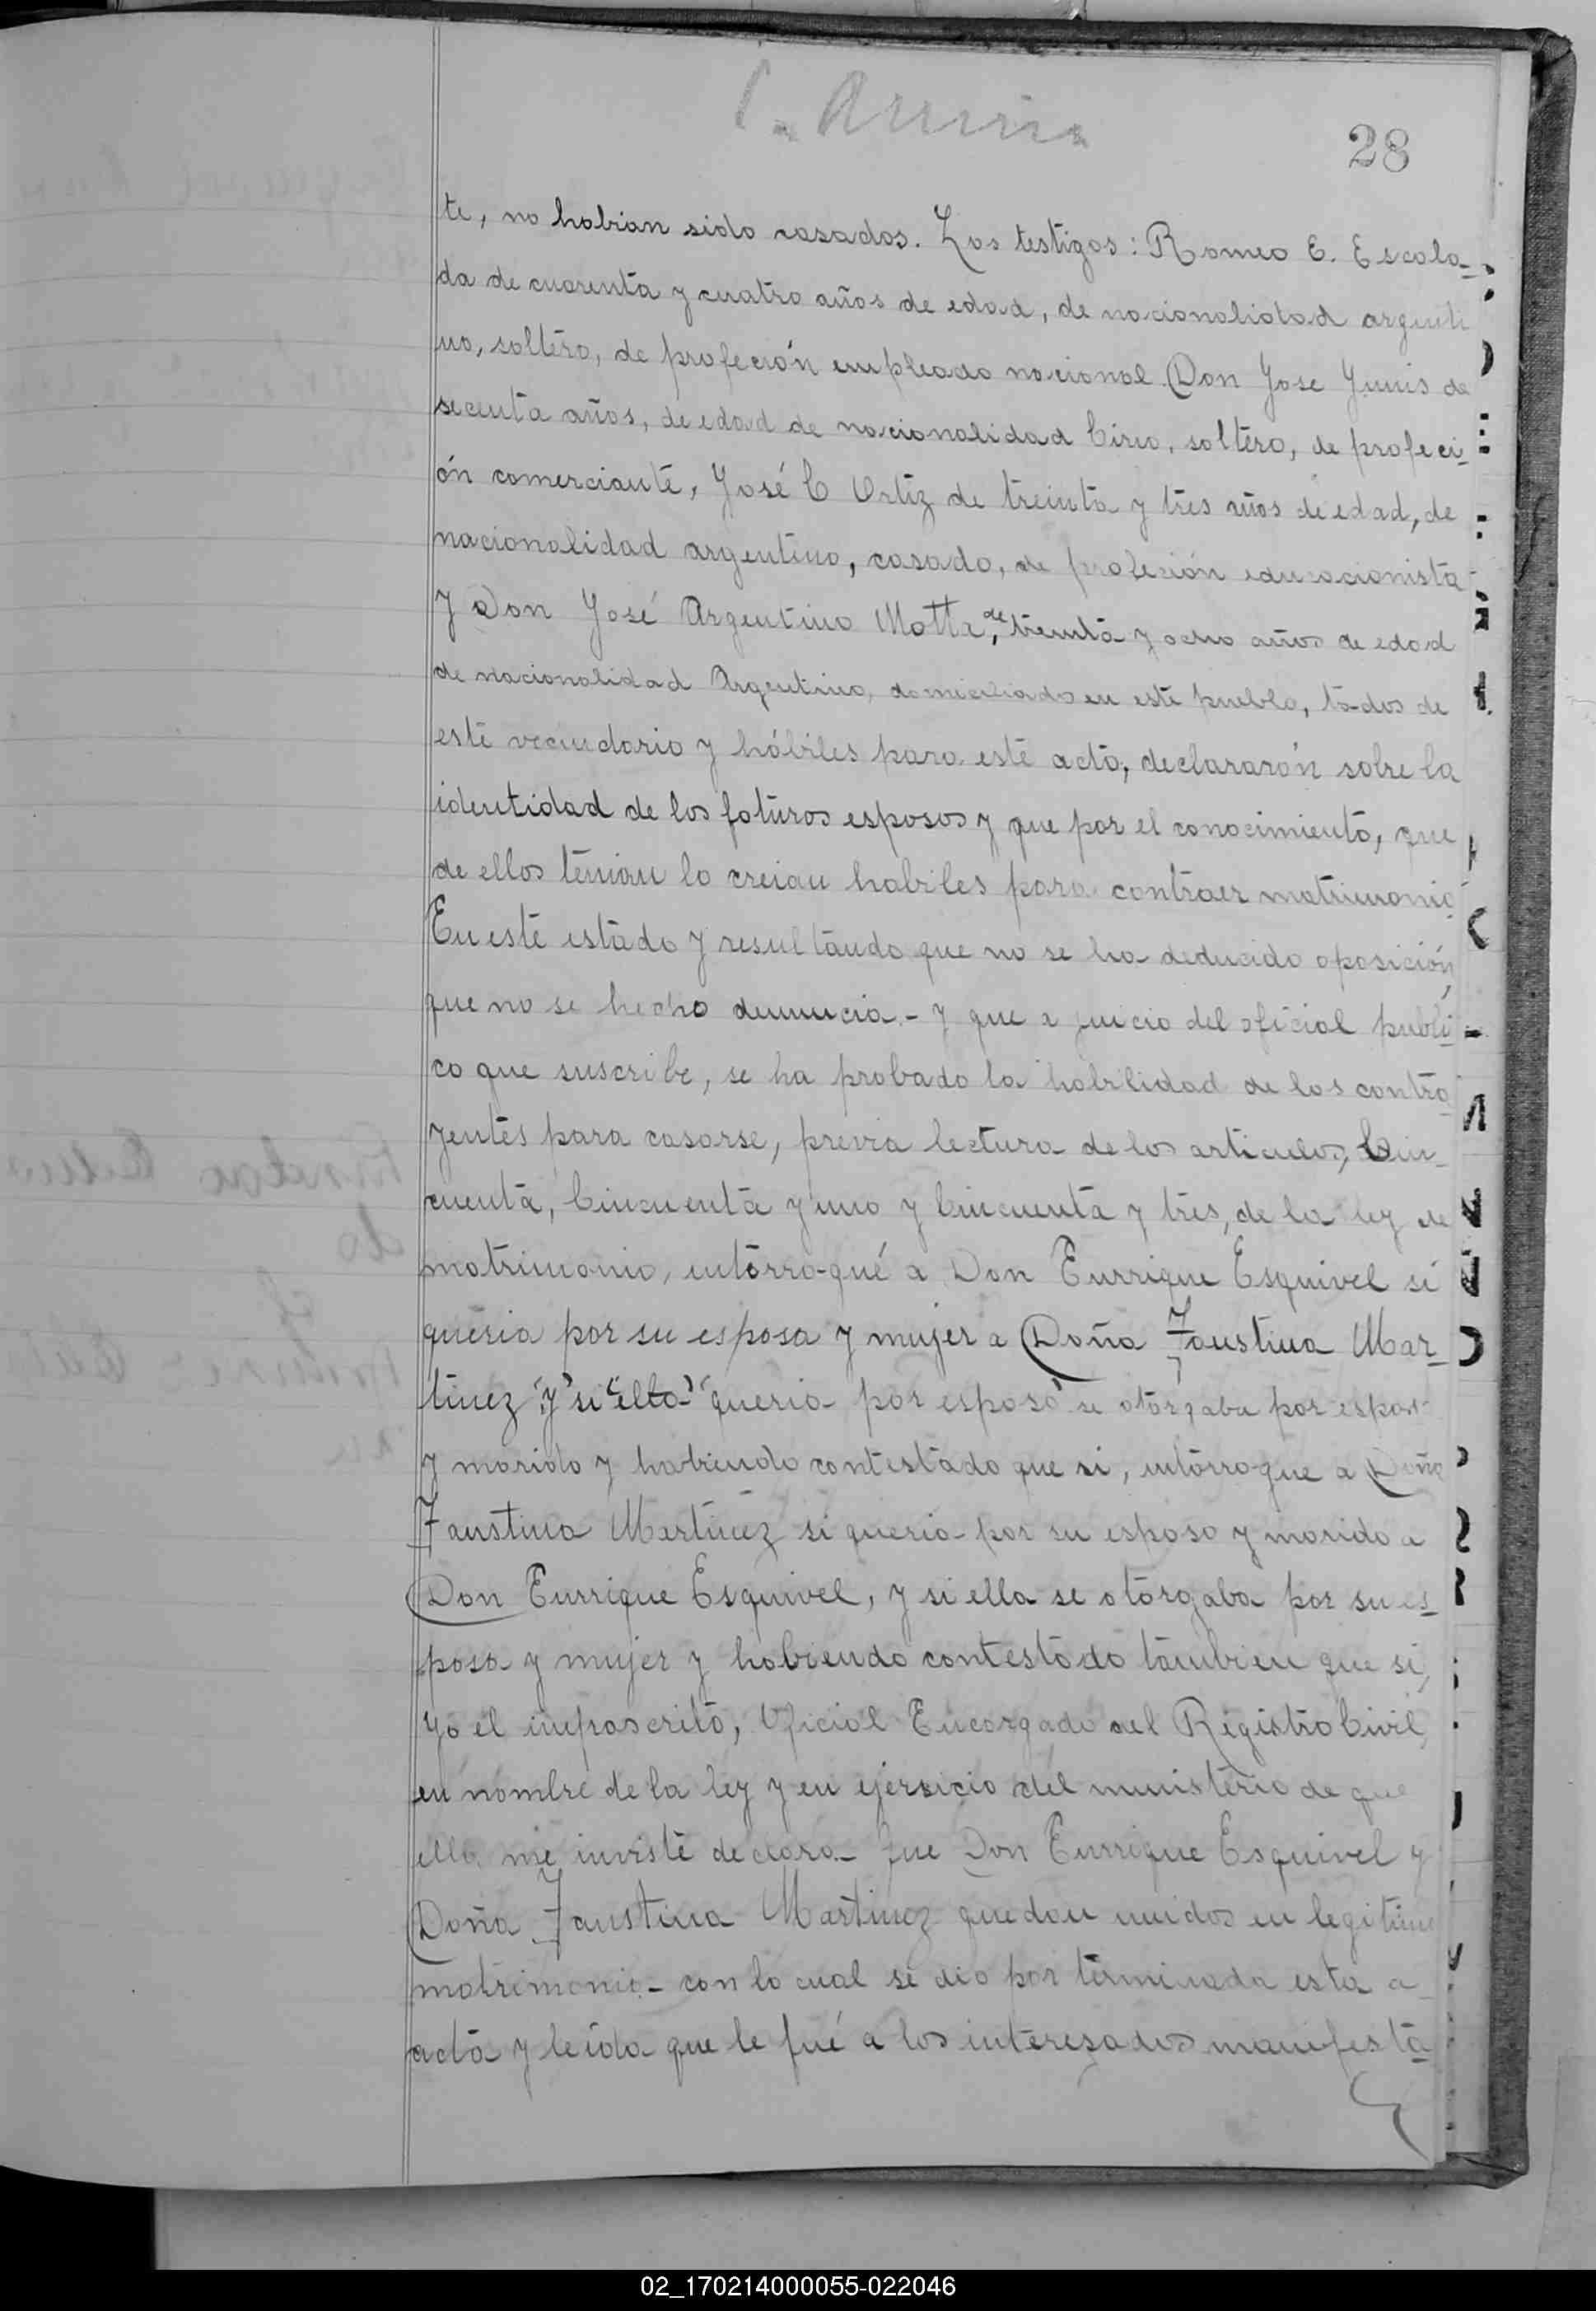 28
te, no habian sido casados. Los testigos: Romeo E. Escala-
da de cuarenta y cuatro años de edad, de nacionalidad argenti
no, soltero, de profeción empleado nacional Don Jose Yunis de
secenta años, de edad de nacionalidad Cirio, soltero, de profeci-
ón comerciante, José C Ortiz de treinta y tres años de edad, de
nacionalidad argentino, casado, de profeción educacionista
y Don José Argentino Motta, de treinta y ocho años de edad
de nacionalidad Argentino, domiciliado en este pueblo, todos de
este vecindario y hábiles para este acto, declararón sobre la
identidad de los foturos esposos y que por el conocimiento, que
de ellos tenian lo creian habiles para contraer matrimonio
En este estado y resultando que no se ha deducido oposición,
que no se hecho denuncia.- y que a juicio del oficial publi-
co que suscribe, se ha probado la habilidad de los contra
yentes para casarse, previa lectura de los articulos, Cin-
cuenta, Cincuenta y uno y Cincuenta y tres, de la ley de
matrimonio, intorrogué a Don Enrrique Esquivel si
queria por su esposa y mujer a Doña Faustina Mar-
tinez "y" si "ella" queria por esposo se otorgaba por esposo
y marido y habiendo contestado que si, intorroque a Doña
Faustina Martinez si queria por su esposo y marido a
Don Enrrique Esquivel, y si ella se otorgaba por su es-
posa y mujer y habiendo contestado tambien que si,
yo el inposcrito, Oficial Encargado del Registro Civil,
en nombre de la ley y en ejersicio del ministerio de que
ella me inviste declaro- que Don Enrrique Esquivel y
Doña Faustina Martinez quedan unidos en legitimo
matrimonio- con lo cual se dio por terminada esta a-
acta y leida que le fué a los interesados manifesta-
02_170214000055-022046